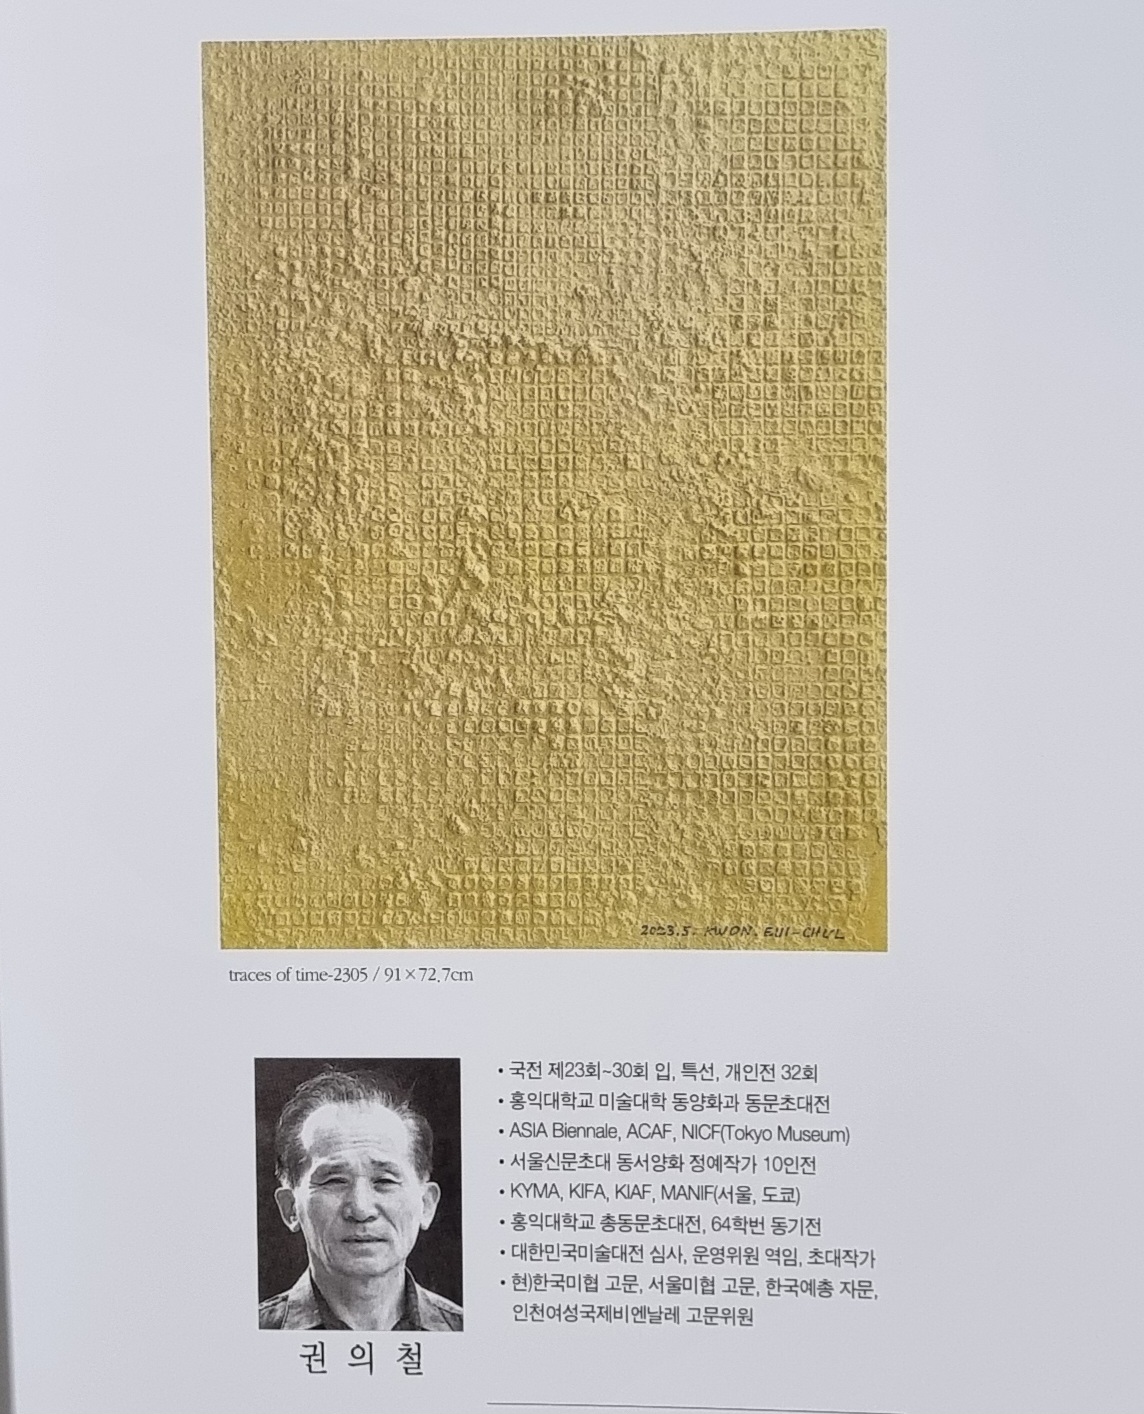 2023.5. KWON. EUI-CHUL
traces of time-2305 / 91×72.7cm
• 국전 제23회~30회 입, 특선, 개인전 32회
• 홍익대학교 미술대학 동양화과 동문초대전
• ASIA Biennale, ACAF, NICF(Tokyo Museum)
• 서울신문초대 동서양화 정예작가 10인전
• KYMA, KIFA, KIAF, MANIF(서울, 도쿄)
• 홍익대학교 총동문초대전, 64학번 동기전
• 대한민국미술대전 심사, 운영위원 역임, 초대작가
• 현)한국미협 고문, 서울미협 고문, 한국예총 자문,
인천여성국제비엔날레 고문위원
권 의 철